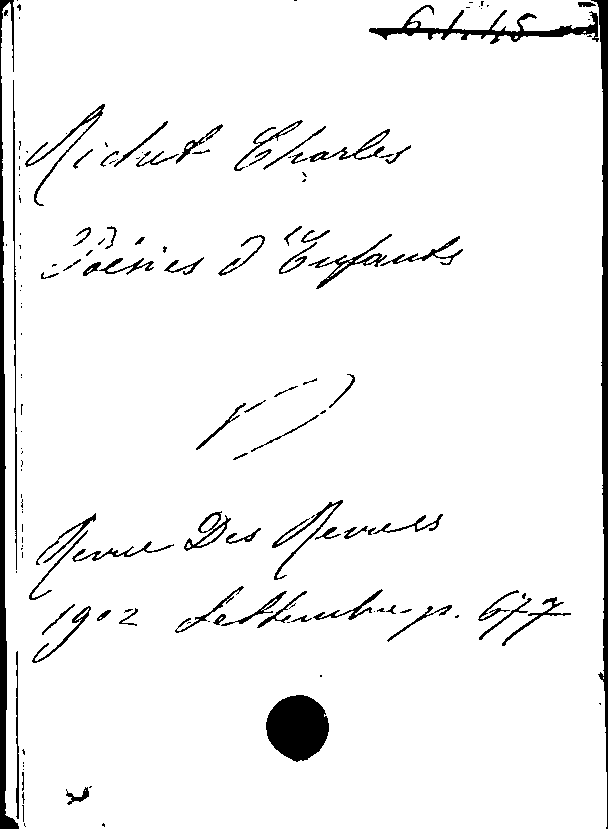 6.1.45
Michut Charles
Poésies d'Enfants
Revue Des Revues
1902 Settembre p. 677